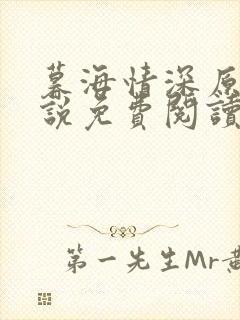 幕海情深原
說免費閱讀
第一先生Mr黃